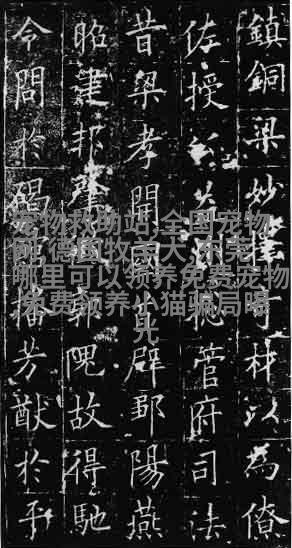 鎮銅梁妙擇奇材以為僚
佐授公為管府司法
昔梁孝開國首辟鄒陽燕
昭建邦肇郭隗故得馳
令問於碣館播芳猷於平
宠物救助站,全国宠物
德国牧羊犬,东莞
哪里可以领养免费宠物
,免费领养小猫骗局曝
光